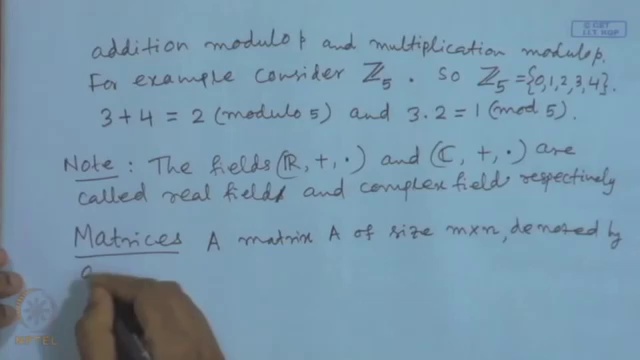 © CET
I.I.T. KGP
addition modulo p and multiplication modulo p.
For example consider ℤ₅. So ℤ₅ = {0,1,2,3,4}.
3+4 = 2 (modulo 5) and 3.2 = 1 (mod 5).
Note : The fields (ℝ, +, ·) and (ℂ, +, ·) are
called real field and complex field respectively
Matrices A matrix A of size m×n, denoted by
NPTEL